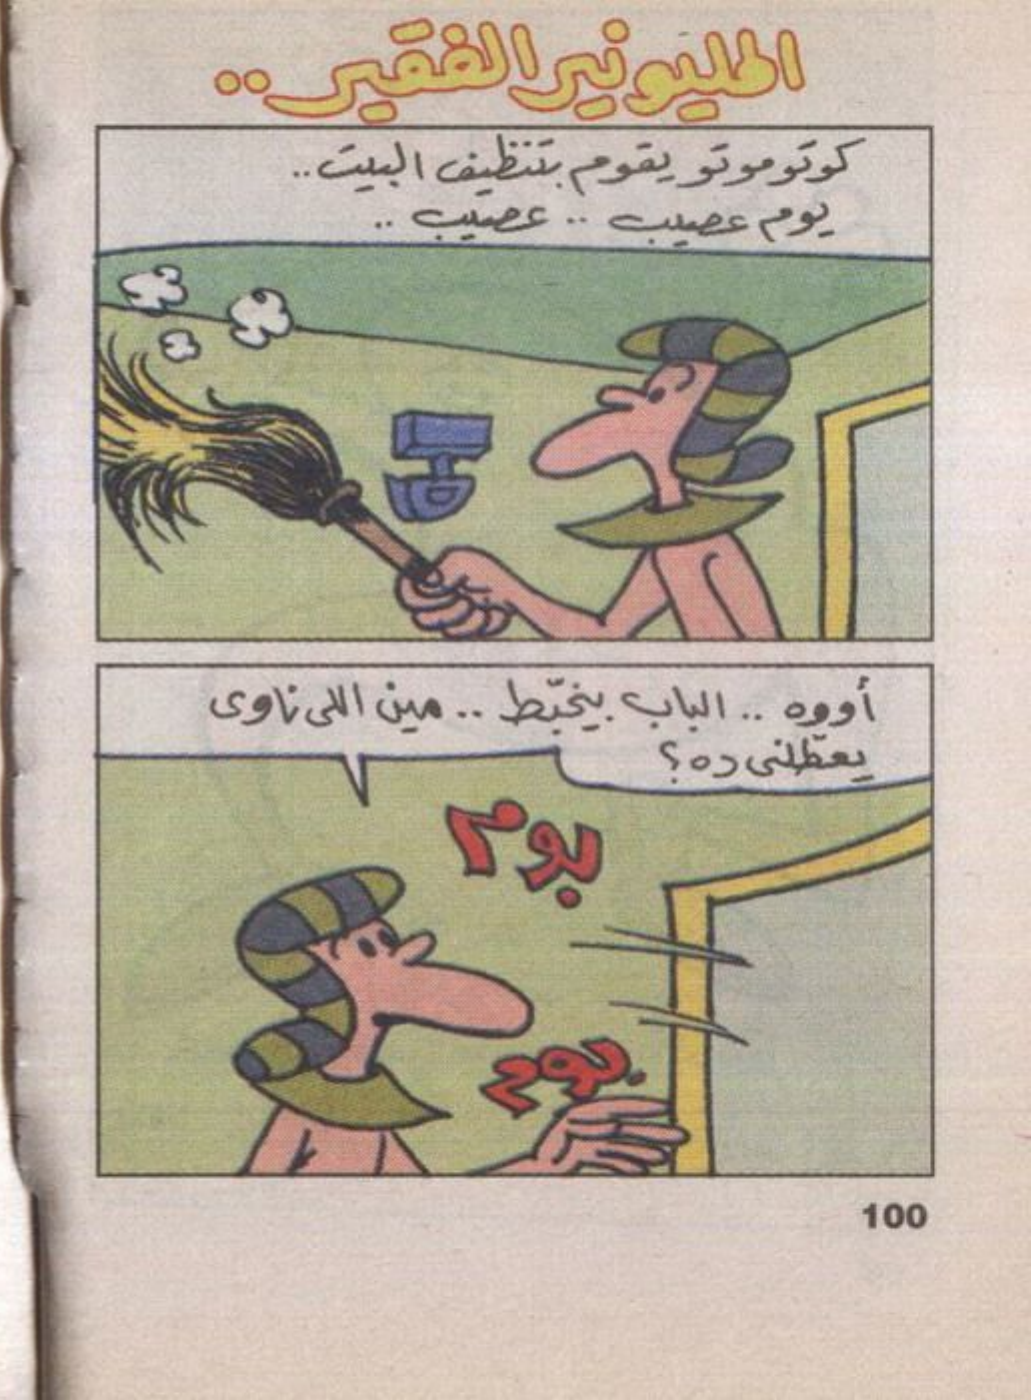 المليونير الفقير..
كوتوموتو يقوم بتنظيف البيت..
يوم عصيب .. عصيب ..
أووه .. الباب بيخبّط .. مين اللى ناوى
يعطّلنى ده؟
بوم
بوم
100